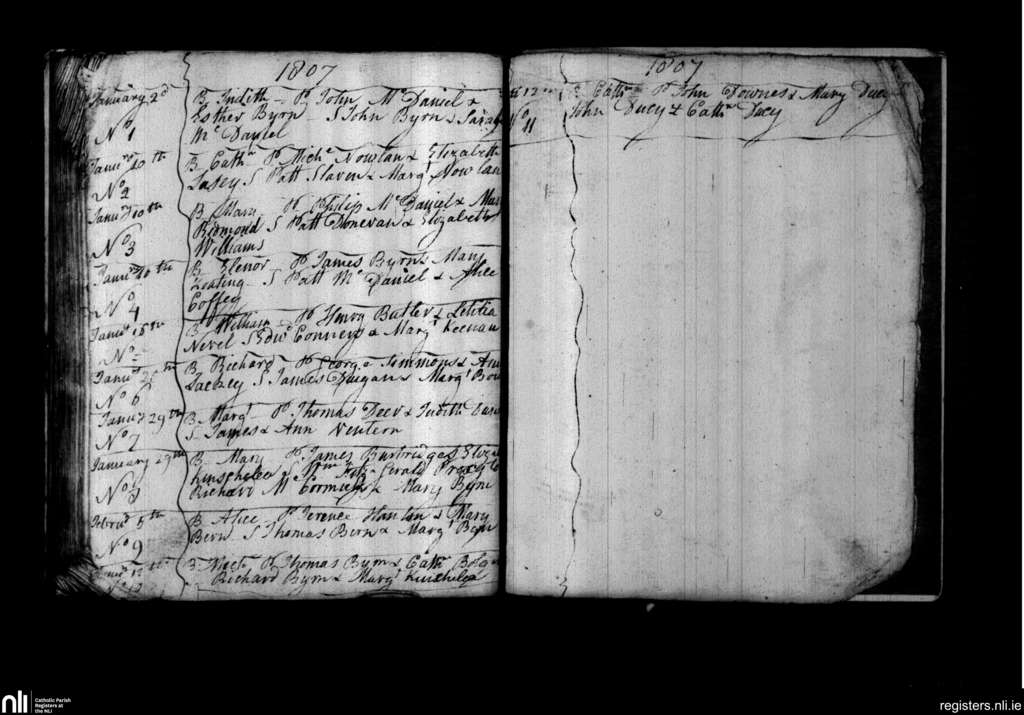 1807
January 2d B Judith - P John McDaniel &
Esther Byrn - S John Byrn & Sarah
No 1 McDaniel
Janury 10th B Cathn P Michl Nowlan & Elizabeth
Lasey S Patt Slaven & Margt Nowlan
No 2
Janury 10th B Mary P Philip McDaniel & Mary
Redmond S Patt Donevan & Elizabeth
No 3 Williams
B Elenor P James Byrn & Mary
Keating S Patt McDaniel & Alice
No 4 Coffey
B William P Henry Butler & Letitia
Nevel S Edwd Connery & Margt Keenan
No
B Richard P George Simmons & Ann
Lackey S James Duigan & Margt
No 6
Janury 29th B Margt - P Thomas Deer & Judith
S James & Ann Nentern
No 7
January 29th B Mary P James Burbridges Eliza
Kinschelea S Wm Fitz Gerald Proxy to
No 8 Richard McCormick & Mary Byrn
5th B Alice P Terence Hanlan & Mary
Bern S Thomas Bern & Margt Bern
No 9
B P Thomas Byrn & Cathn
Richard Byrn & Margt Kinshelea
1807
12th B Cathn P John Townes & Mary Ducy
No 11 John Ducy & Cathn Ducy
nli
Catholic Parish
Registers at
the NLI
registers.nli.ie